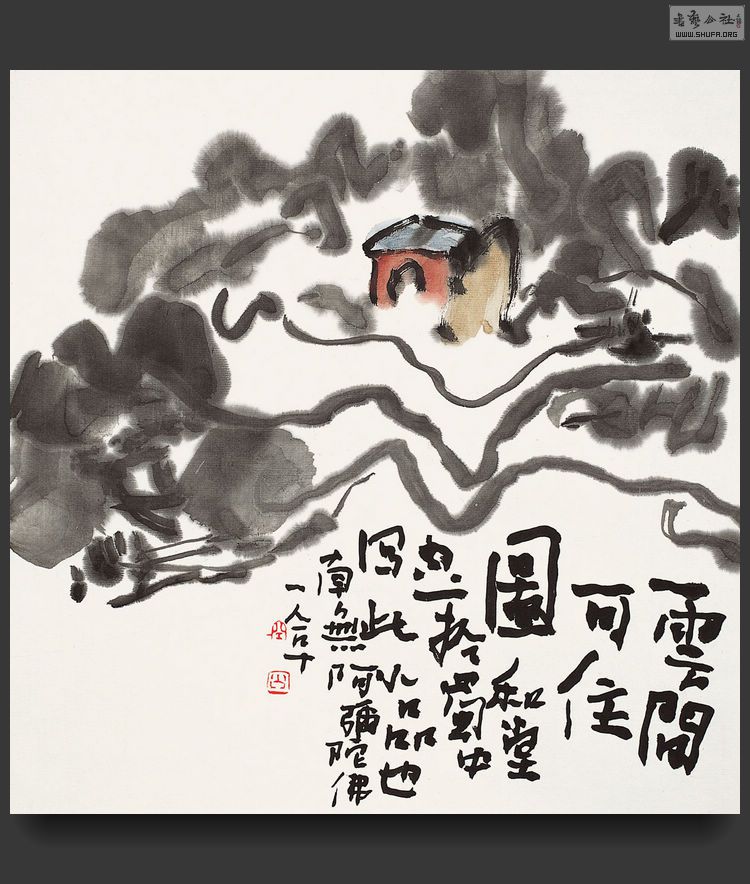 書藝公社
WWW.SHUFA.ORG
雲間
可住
圖 和堂
於蜀中
写此小品也
南無阿彌陀佛
一人合十